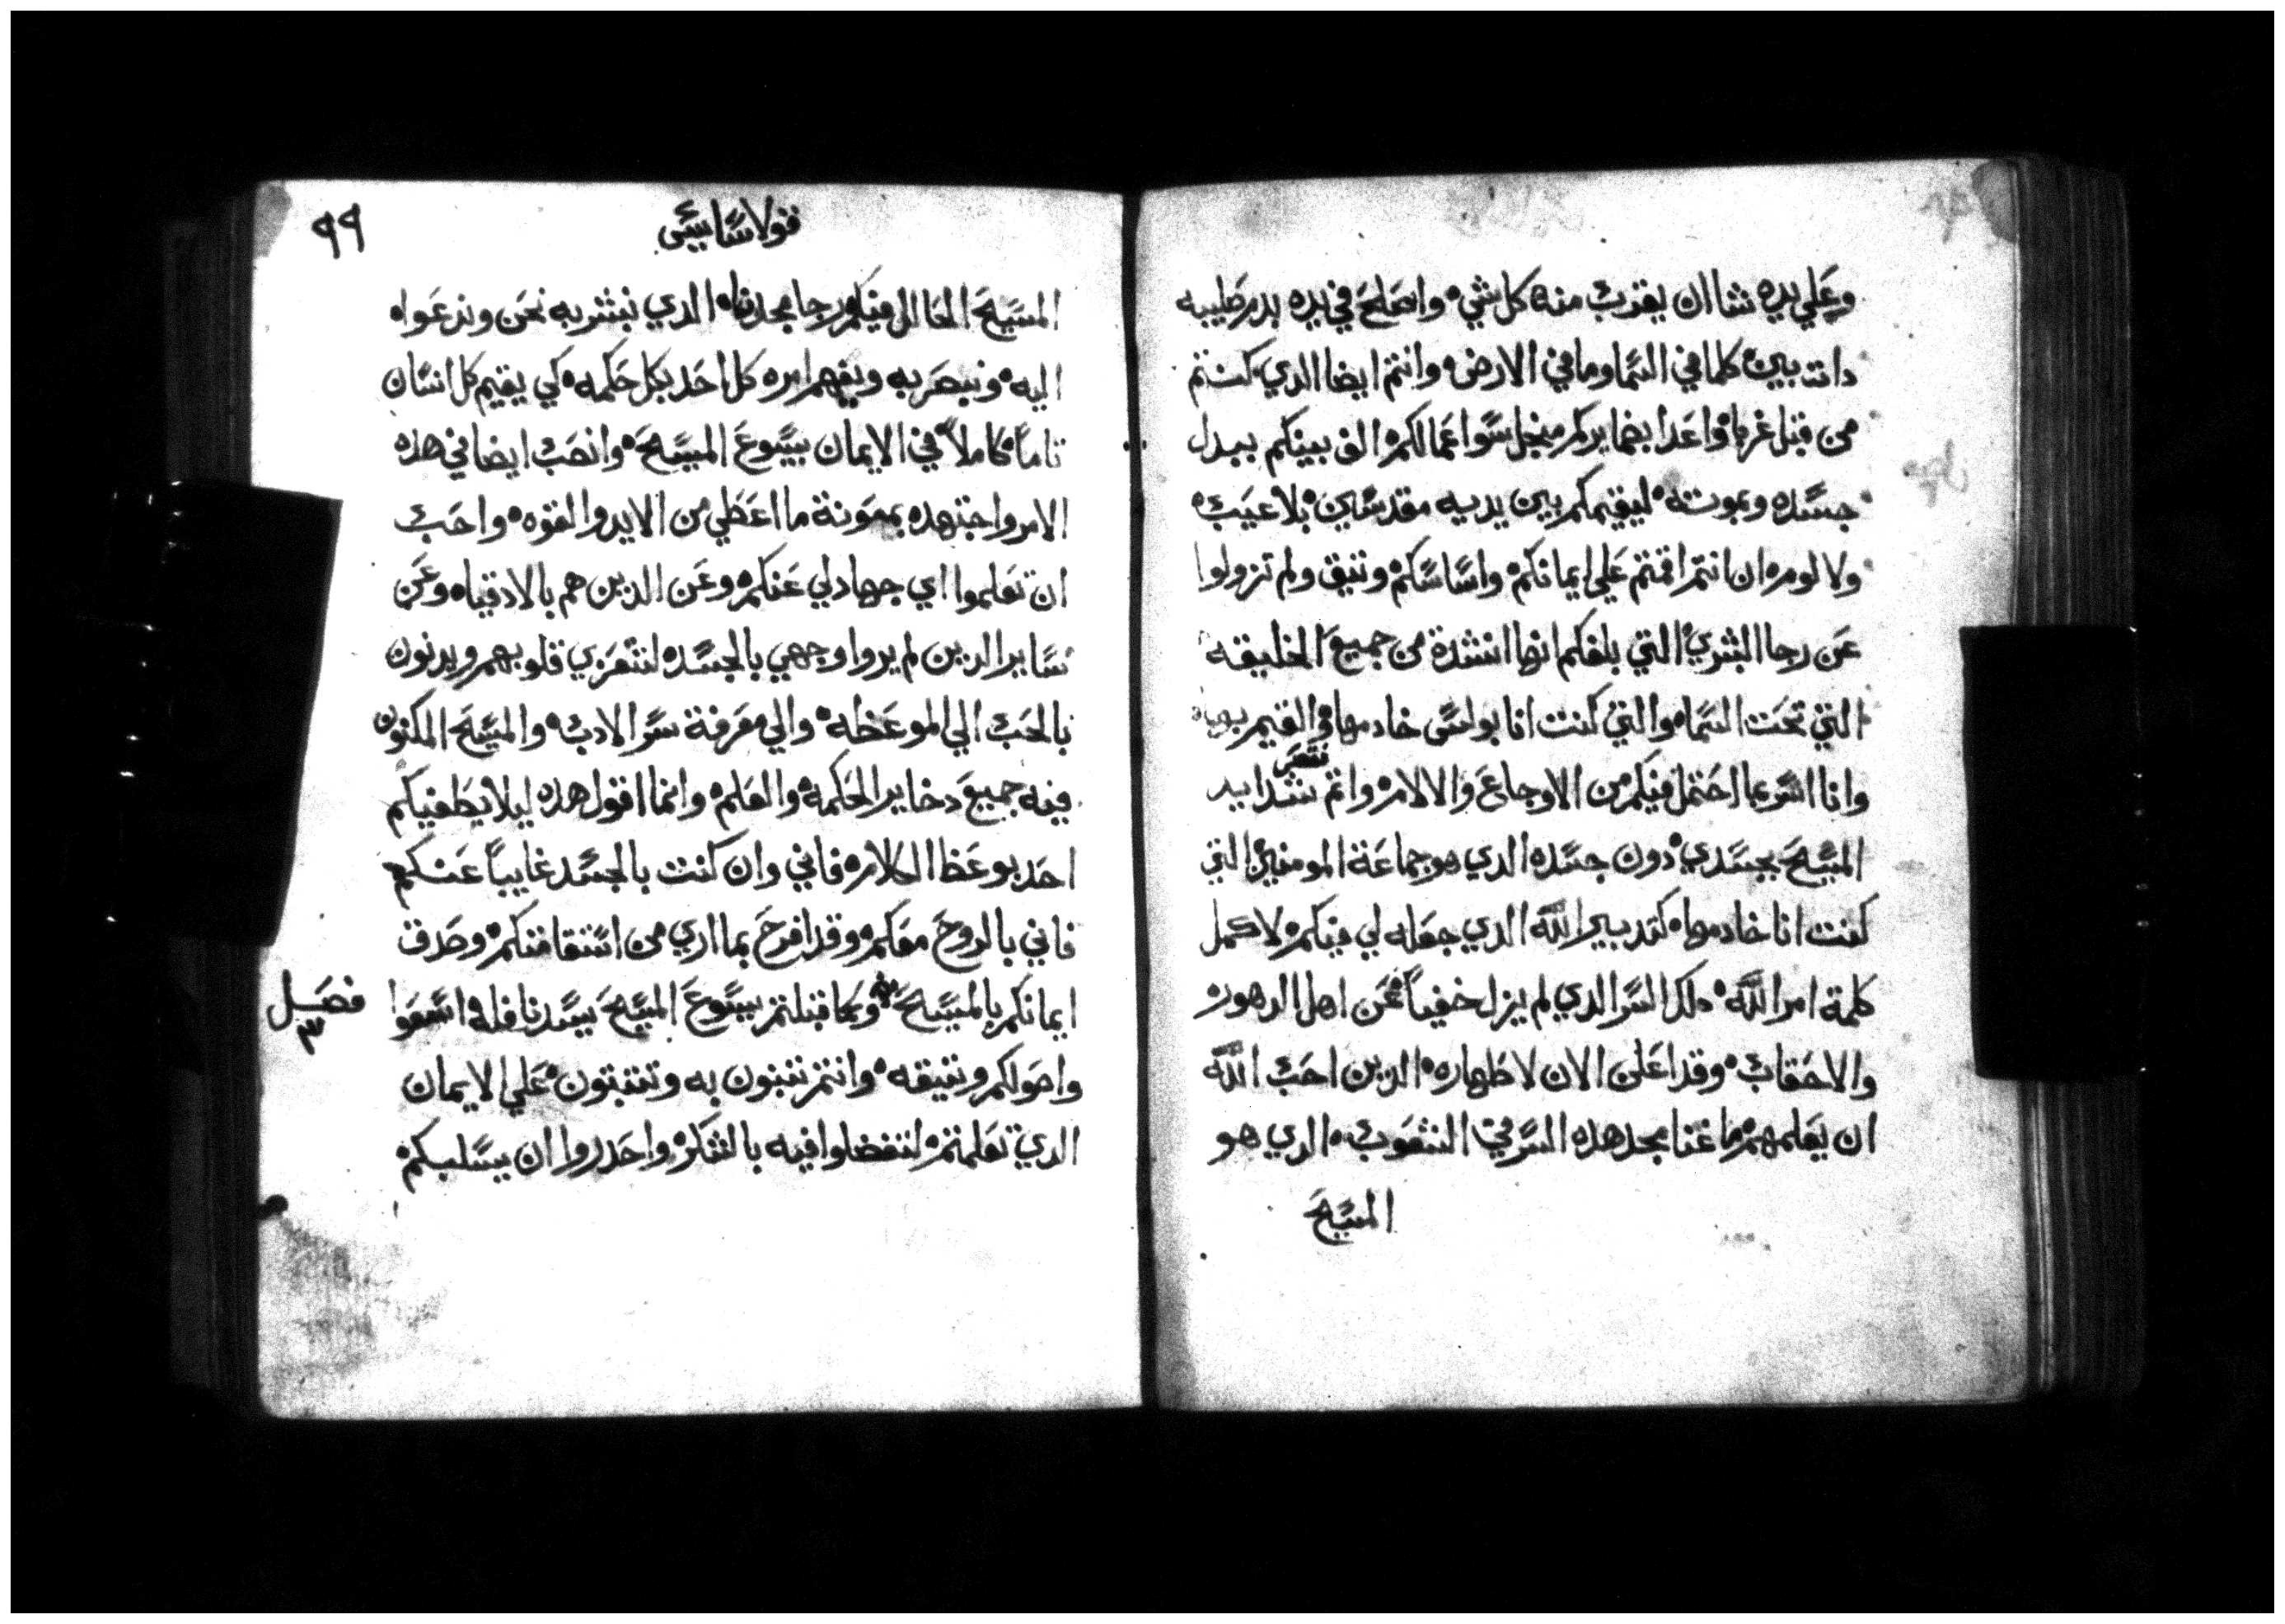 وعلي يده شا ان يقرب منه كل شي، واصلح في يده بدم صليبه
دات بين كلما في السما وما في الارض، وانتم ايضا الدي كنتم
من قبل غربا، واعدا بضمايركم من اجل سوا عمالكم، الف بينكم ببدل
جسده وبموته، ليقيمكم بين يديه مقدسين، بلا عيب،
ولا لوم، ان انتم اقمتم علي ايمانكم، واساسكم، وتيق ولم تزولوا
عن رجا البشري، التي بلغكم انها انشدة من جميع الخليقه
التي تحت السما، والتي كنت انا بولس خادمها، والقيم بها،
وانا اسر بما احتمل فيكم من الاوجاع والالام، واتم شدايد
المسيح بجسدي، دون جسده الدي هو جماعة المومنين، التي
كنت انا خادمها، كتدبير الله الدي جعله لي فيكم، لاكمل
كلمة امر الله، دلك السر الدي لم يزل خفياً، عن اهل الدهور،
والاحقاب، وقد اعلن الان لاطهاره، الدين احب الله
ان يعلمهم ما غنا مجد هده السر في الشعوب، الدي هو
المسيح
٩٩
قولاسايس
المسيح الحال فيكم، رجا مجدنا، الدي نبشر به نحن وندعوا،
اليه، ونبصر به ويفهم امره كل احد بكل حكمه، كي يقيم كل انسان
تاماً، كاملاً، في الايمان بيسوع المسيح، وانصب ايضا في هده
الامر واجتهده بمعونة ما اعطي من الايد والقوه، واحب
ان تعلموا اي جهاد لي عنكم، وعن الدين هم بالادقيا، وعن
ساير الدين لم يروا وجهي بالجسد، لتتعزي قلوبهم، ويدنون
بالحب الي الموعظه، والي معرفة سر الاب، والمسيح المكنون
فيه جميع دخاير الحكمه، والعلم، وانما اقول هده ليلا يطغيكم
احد بوعظ الكلام، فاني وان كنت بالجسد غايباً عنكم،
فاني بالروح معكم، وقد افرح بما اري من استقامتكم، وصدق
ايمانكم بالمسيح، وكما قبلتم بيسوع المسيح سيدنا فله اسعوا
فصل
٣
واصولكم وتيقه، وانتم تبنون به وتتبتون، علي الايمان
الدي تعلمتم، لتتفضلوا فيه بالشكر، واحدروا ان يسلبكم،